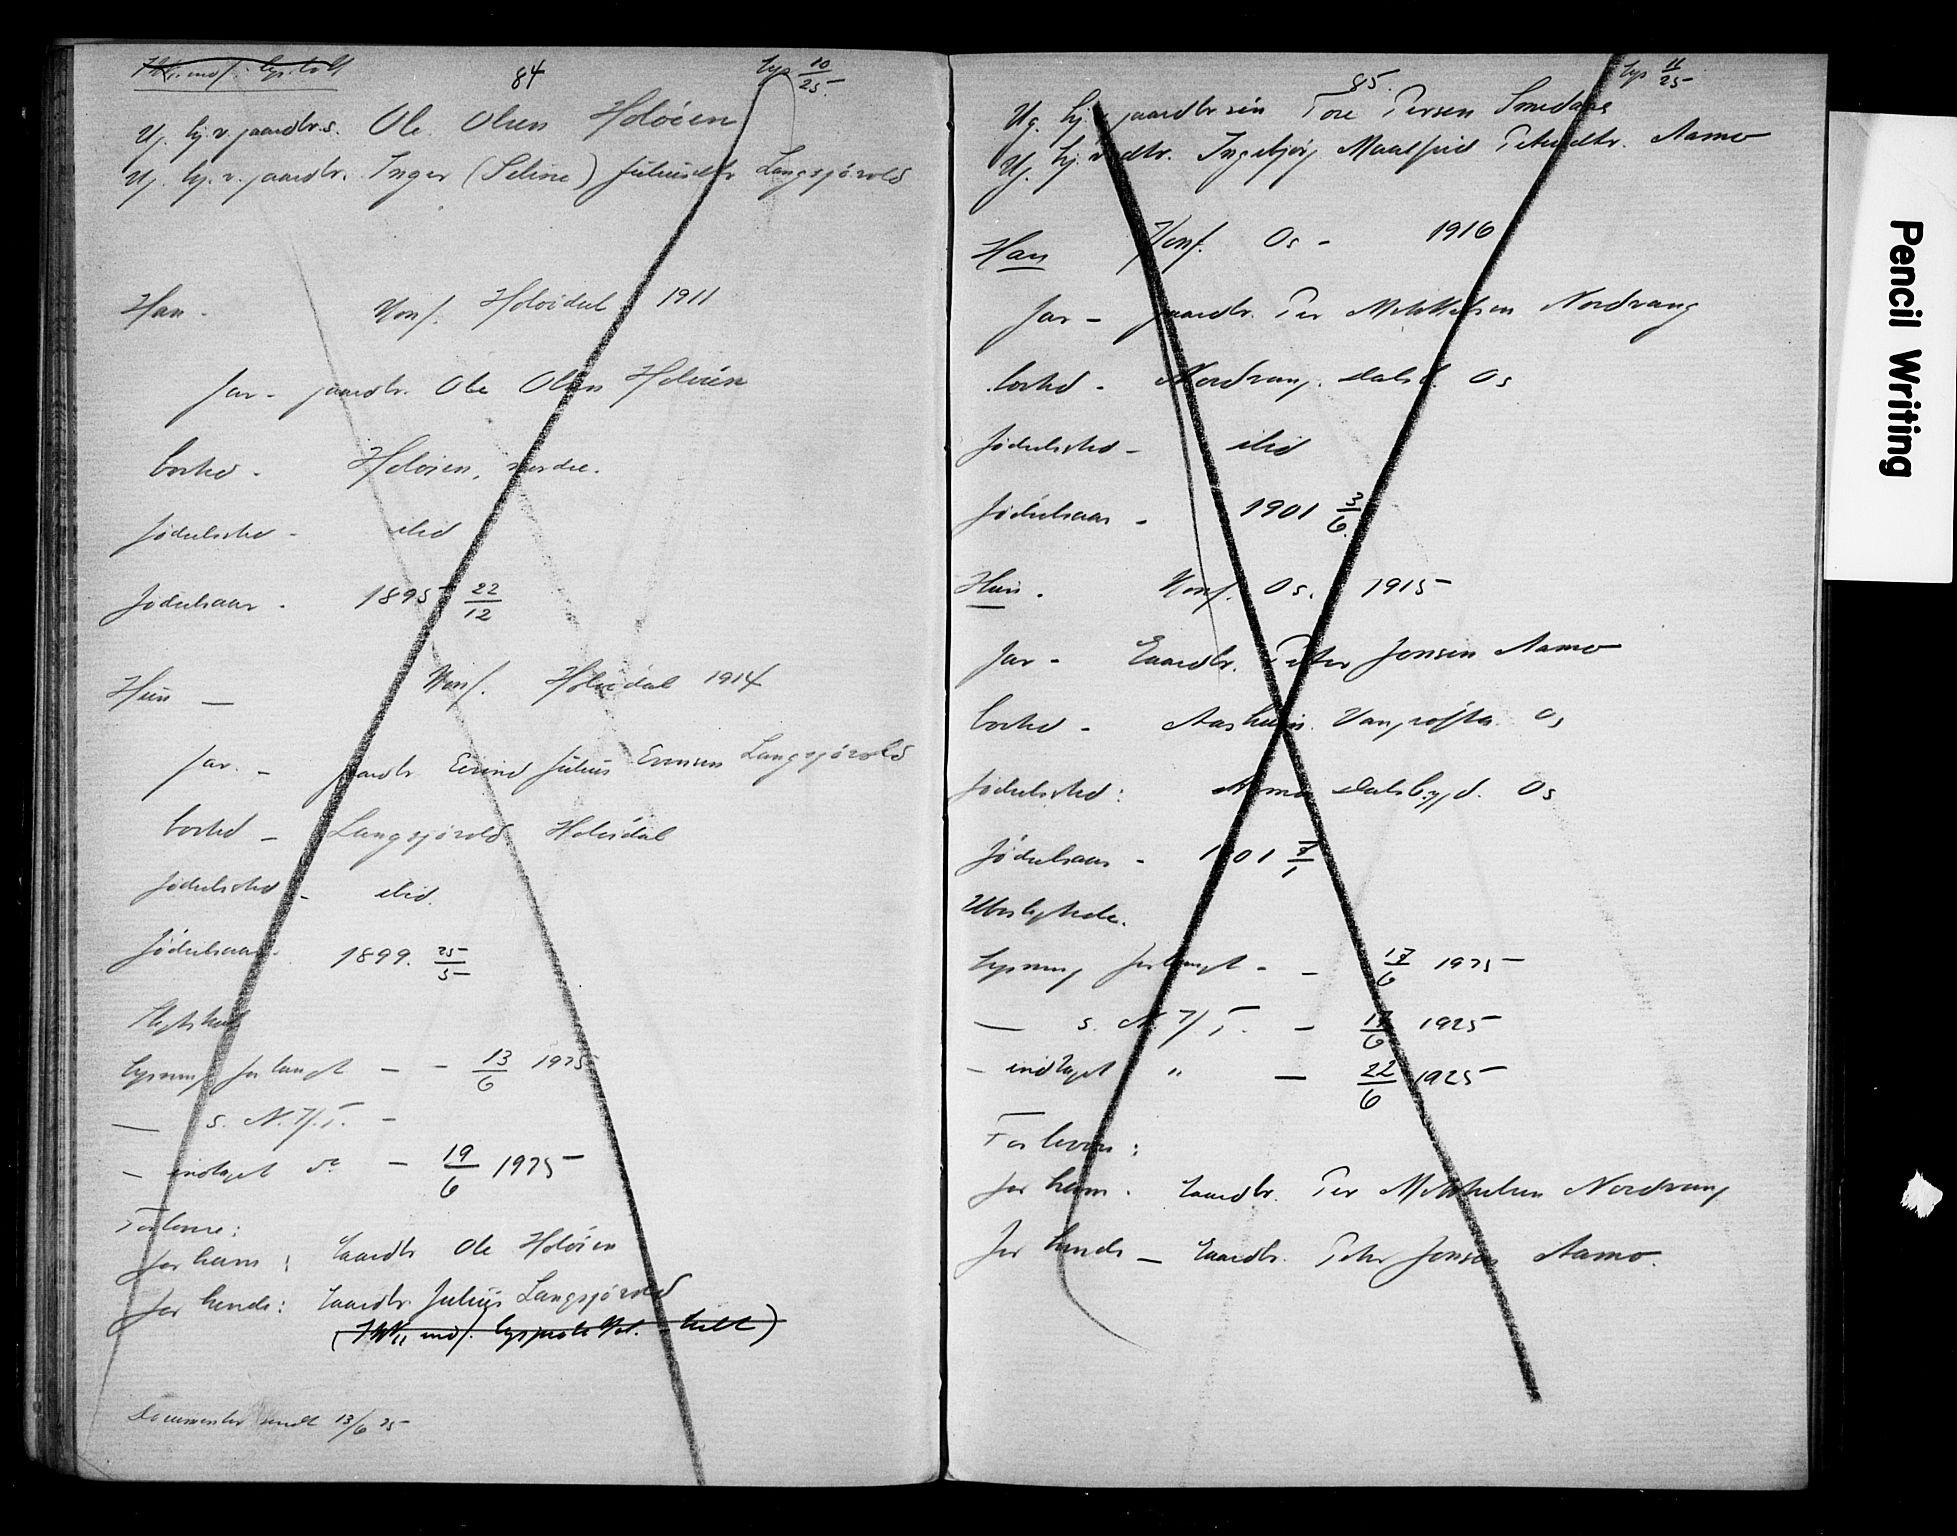 84
Lys 10/25
Ug. hj. v. gaardbr.s. Ole Olsen Holøien
Ug. hj. v. gaardbr. Inger (Seline) Juliusdtr Langsjøvold
Han - Konf. Holøidal 1911
far - gaardbr. Ole Olsen Holøien
bosted - Holøien, nordre.
fødselssted - ibid
fødselsaar - 1895 22/12
Hun — Konf. Holøidal 1914
far. - gaardbr. Eivind Julius Evensen Langsjøvold
bosted - Langsjøvold Holøidal
fødselssted - ibid.
fødselsaar 1899. 25/5
Slegtskab
Lysning forlangt - - 13/6 1925
— s. N.T/T. -
- indtaget do - 19/6 1925
Forlovere:
for ham: Gaardbr Ole Holøien
for hende: Gaardbr. Julius Langsjøvold
Documenter sendt 13/6 25
85.
Lys 11/25
Ug. hj. v. gaardbrsøn Tore Persen
Ug. hj. v. dtr. Ingebjørg Maalfrid Petersdtr. Aamo
Han Konf. Os - 1916
far - gaardbr. Per Mikkelsen Nordvang
bosted - Nordvang. Dalsb. Os
fødselssted - ibid
fødselsaar - 1901 3/6
Hun. Konf. Os. 1915
far - Gaardbr. Peter Jonsen Aamo
bosted - Aasheim. Vangrøfta. Os
fødselssted: Aamo Dalsbygd. Os
fødselsaar - 1901
Ubeslegtede.
Lysning forlangt - - 17/6 1925
— s. N.T/T. - 17/6 1925
- indtaget " — 22/6 1925
Forlovere:
for ham. Gaardbr. Per Mikkelsen Nordvang
for hende - Gaardbr. Peter Jonsen Aamo.
Pencil Writing